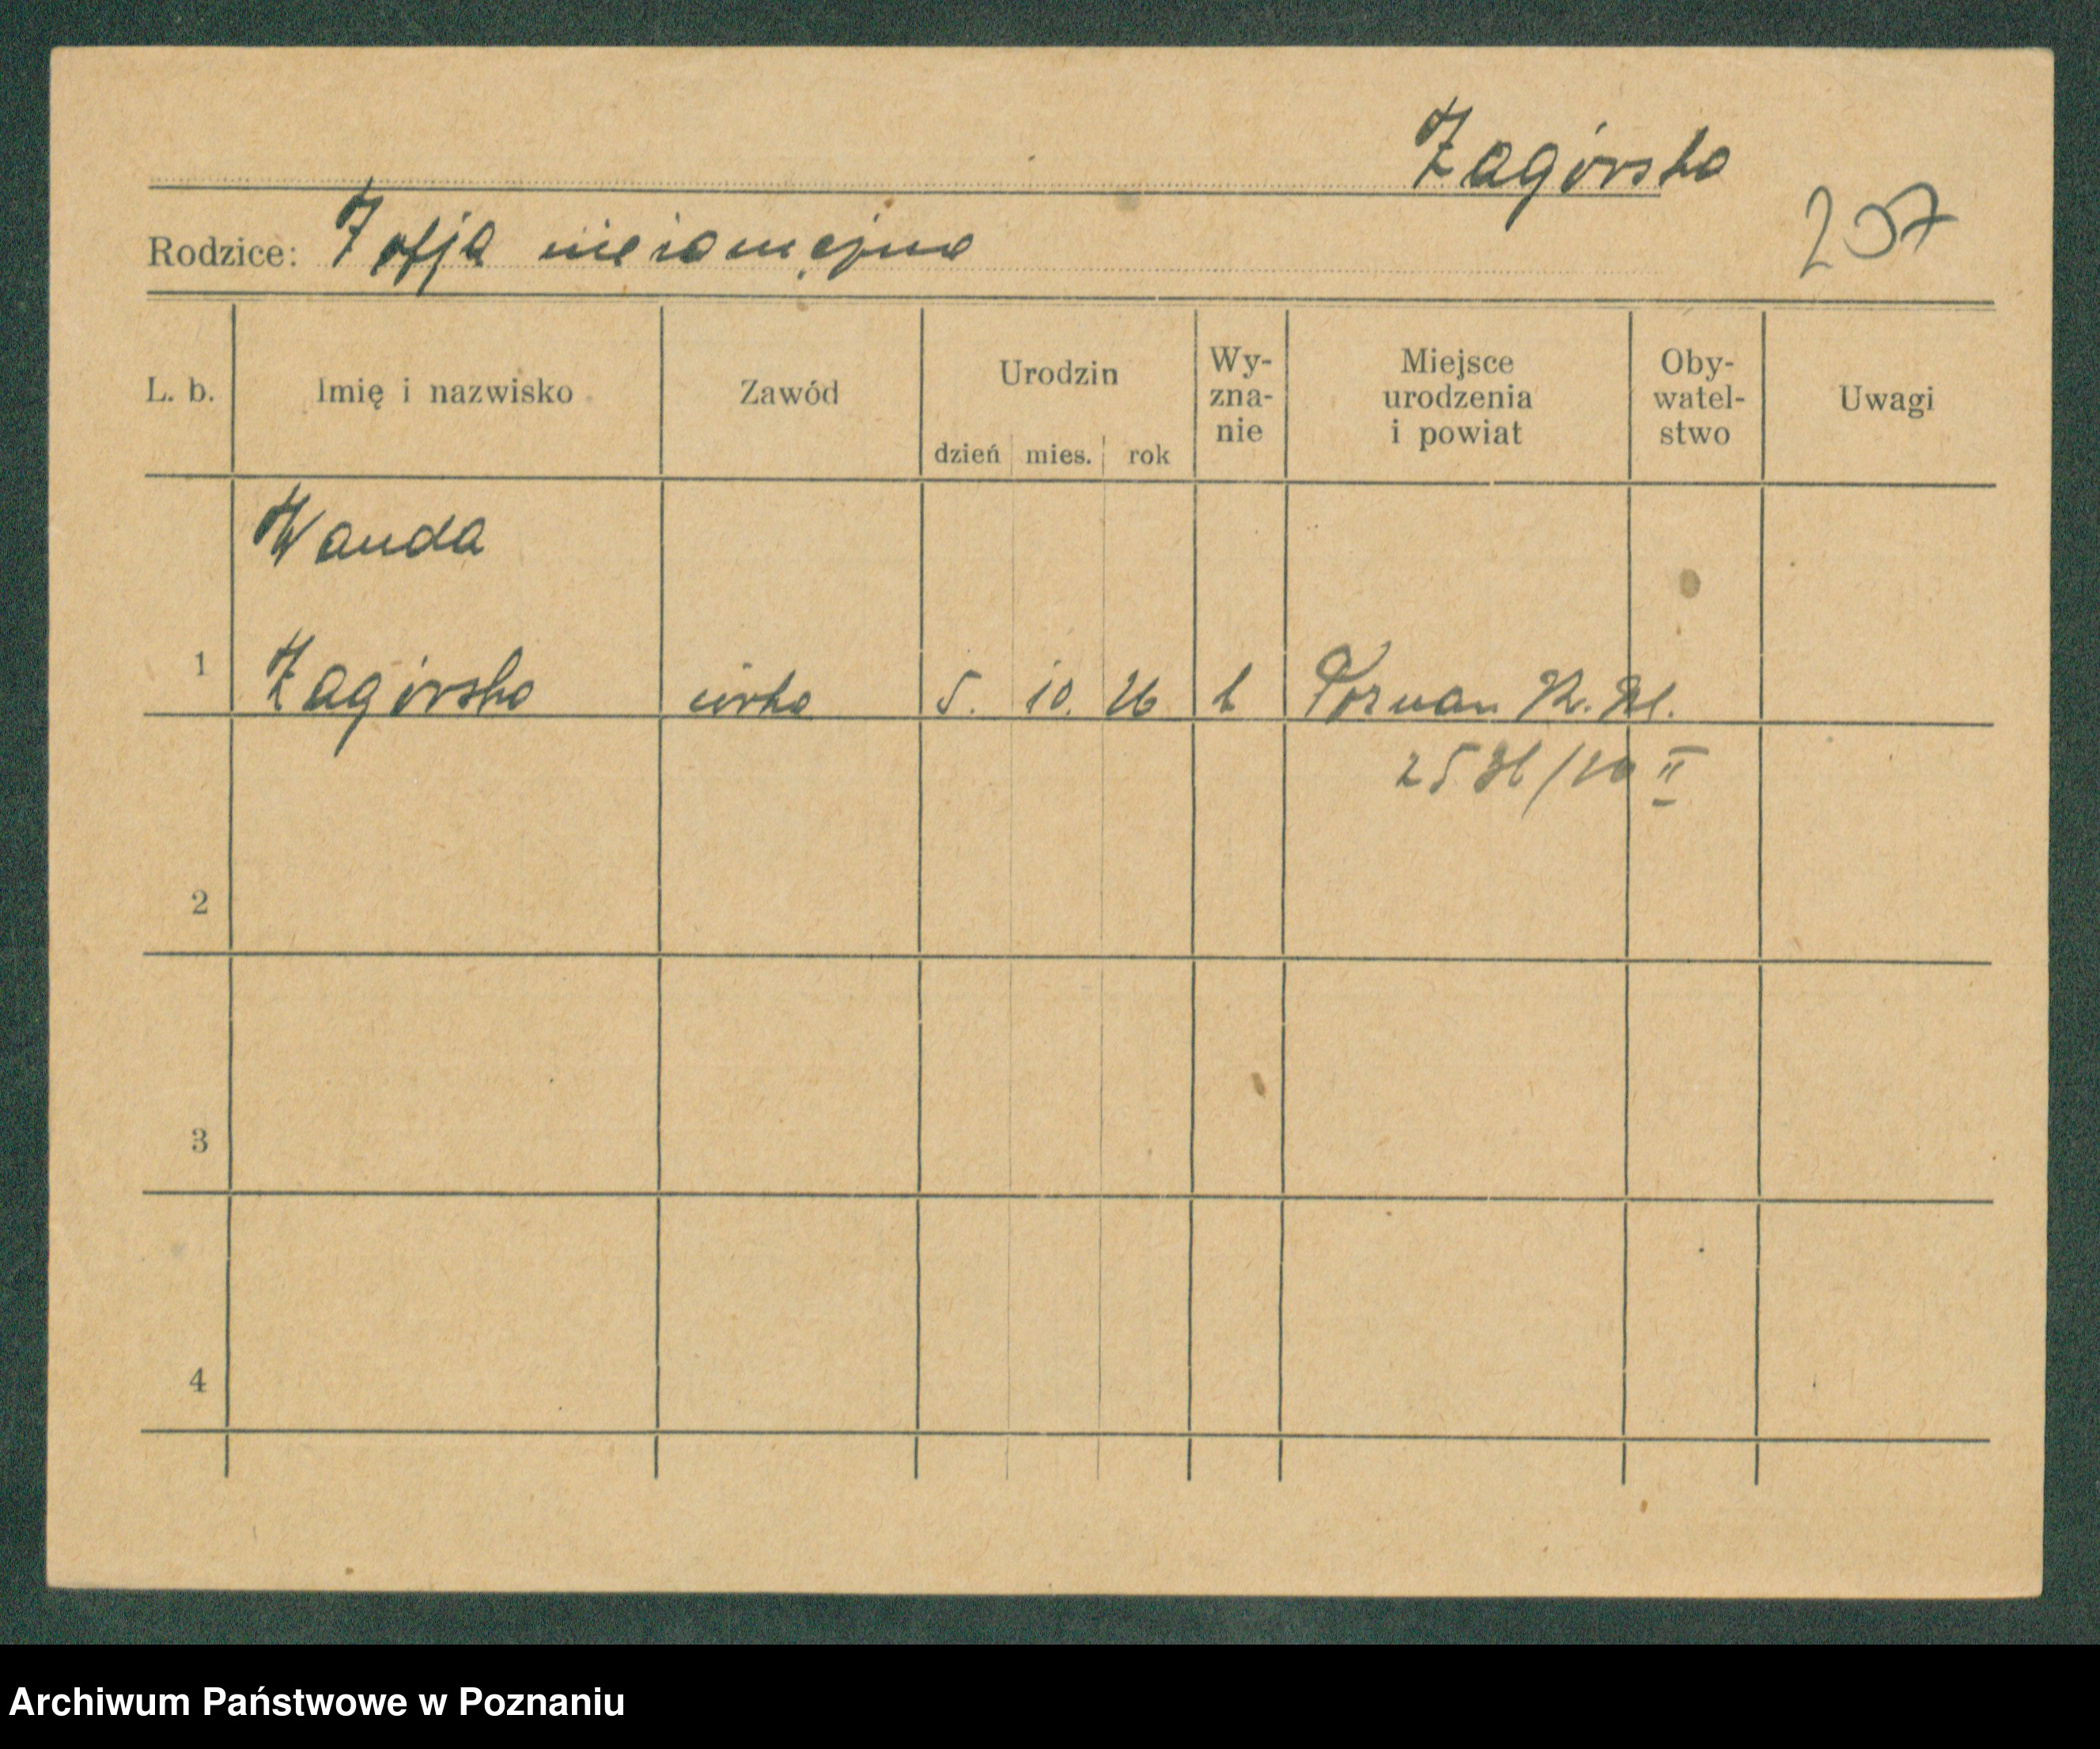 Zagórska
Rodzice: Zofja niezamężna
207
L. b. Imię i nazwisko Zawód Urodzin dzień mies. rok Wy-zna-nie Miejsce urodzenia i powiat Oby-watel-stwo Uwagi
Wanda
1 Zagórska córka 5. 10. 26 k Poznań
2
3
4
Archiwum Państwowe w Poznaniu